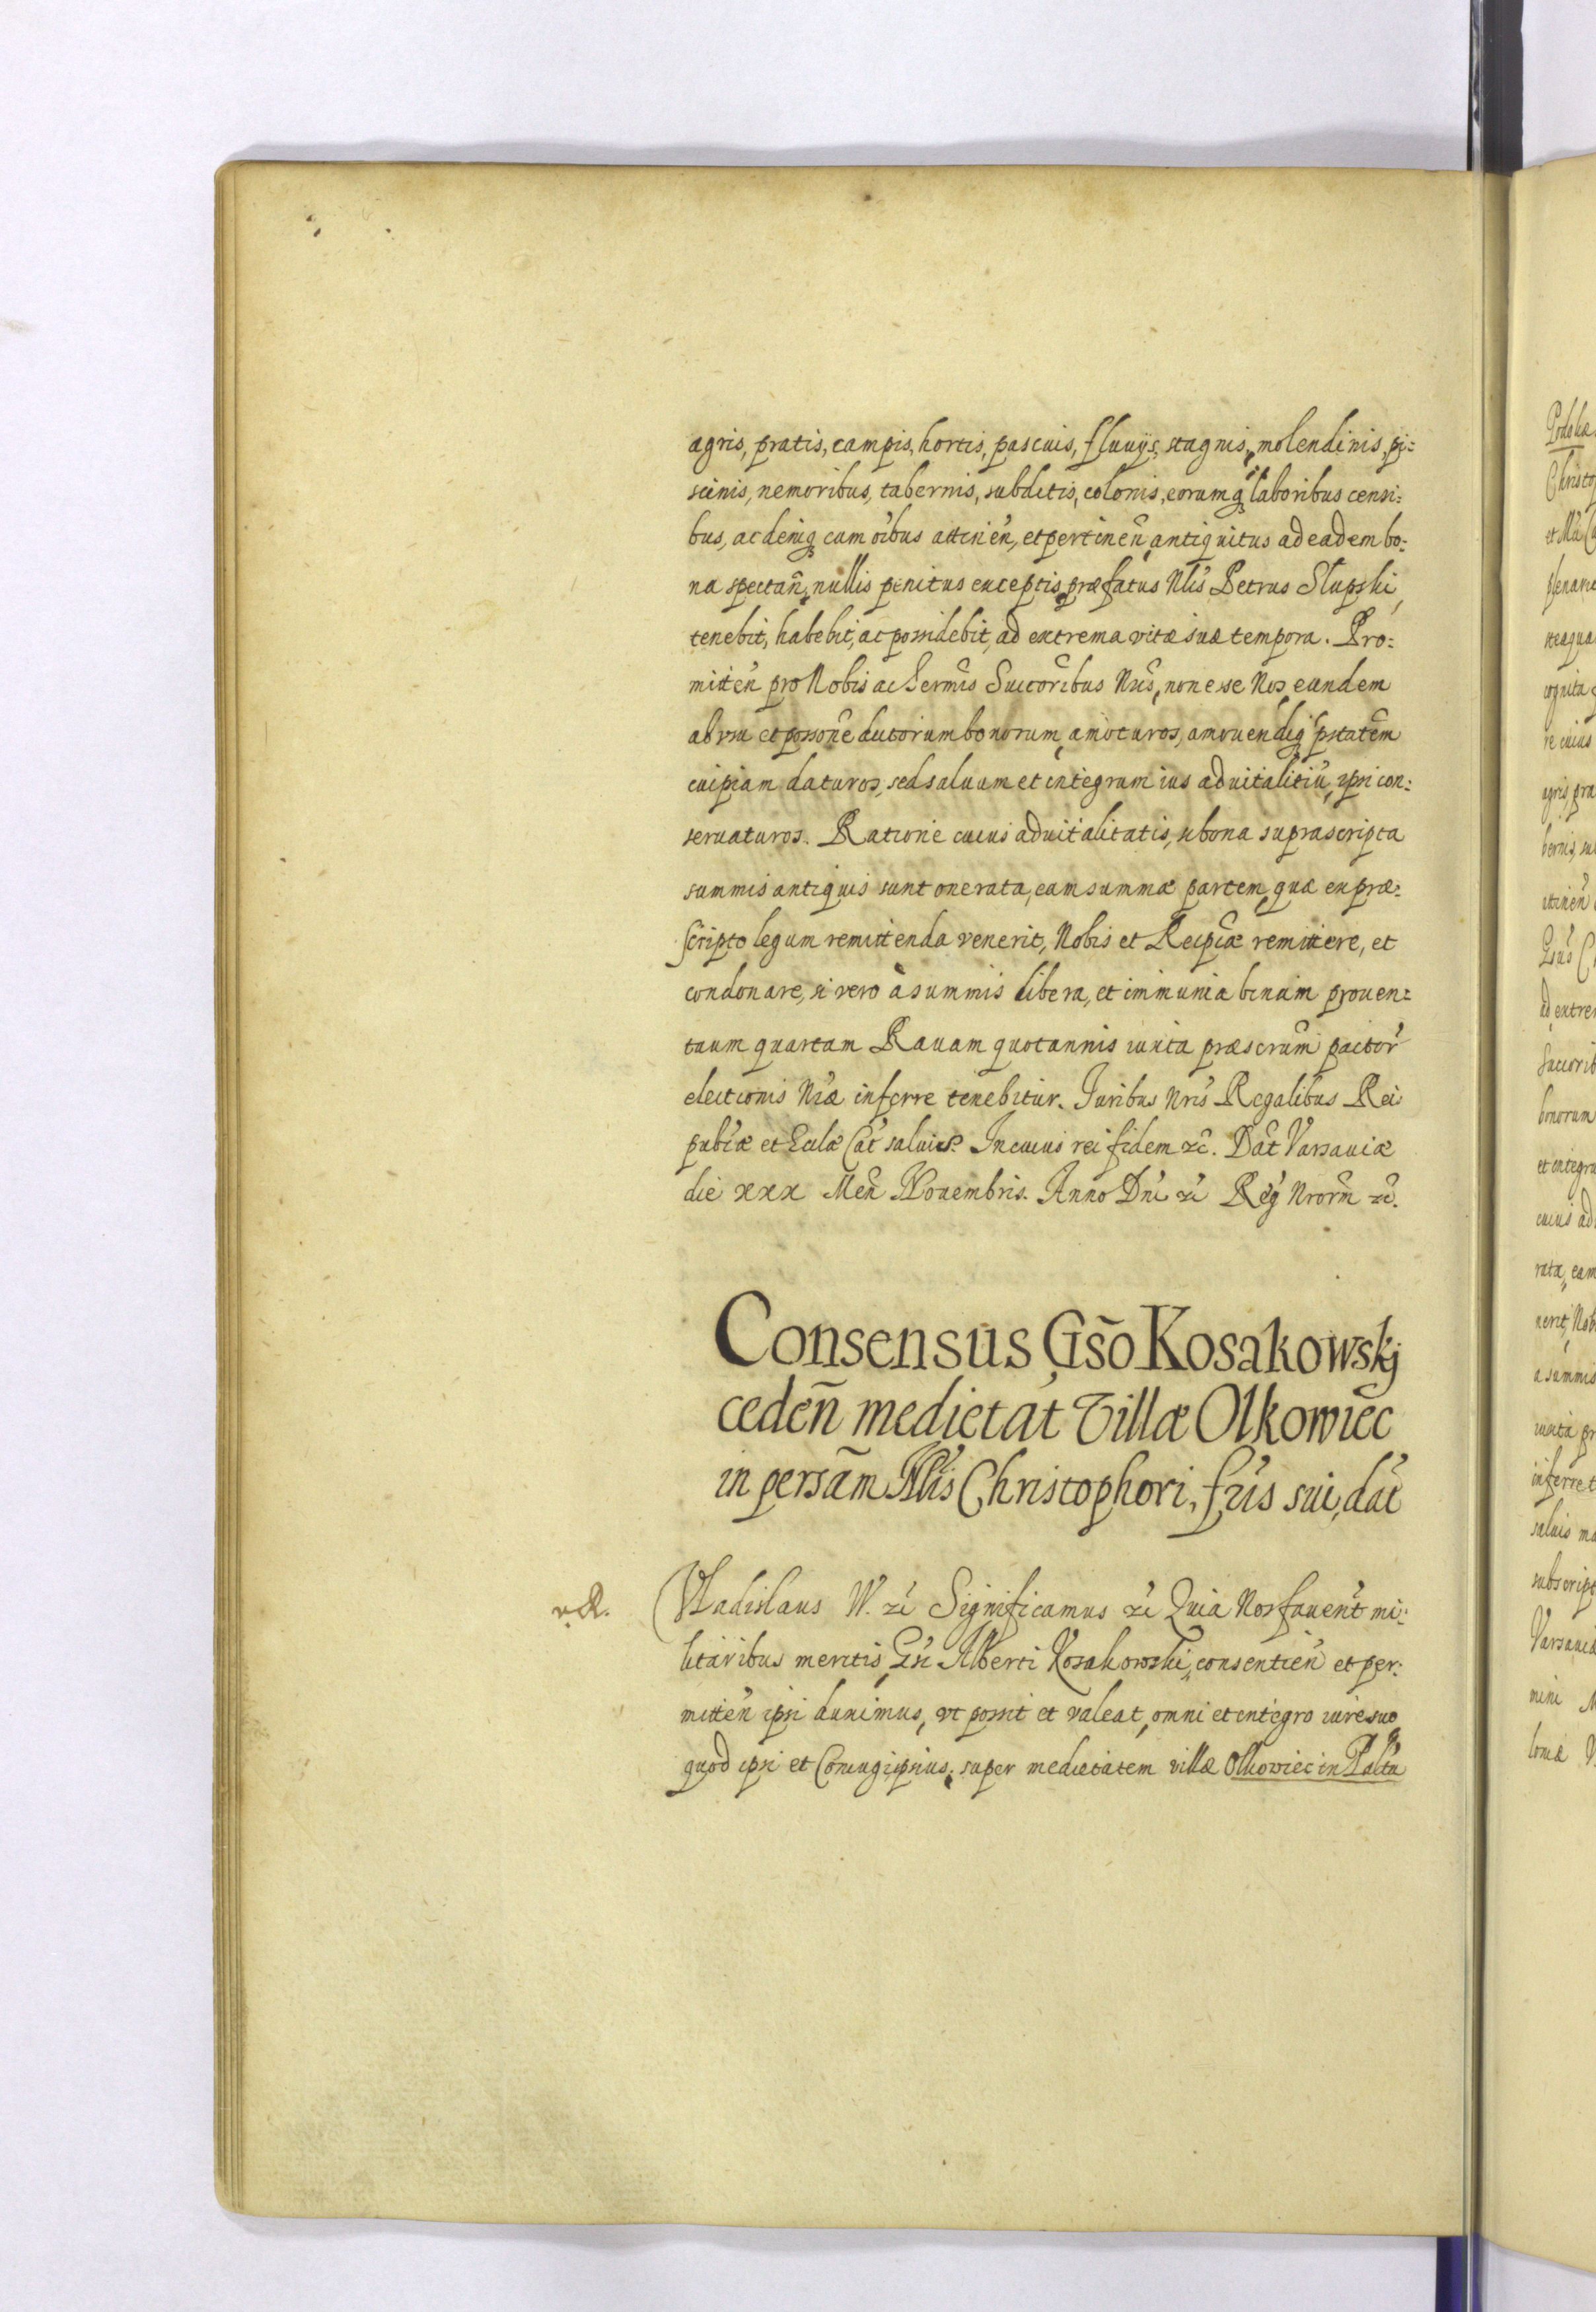 agris, pratis, campis, hortis, pascuis, fluuijs, stagnis, molendinis, pi:
scinis, nemoribus, tabernis, subditis, colonis, eorumq laboribus censi:
bus, ac deniq cum oibus attinen, et pertinen antiquitus ad eadem bo:
na spectan, nullis penitus exceptis, præfatus Nlis Petrus Słupski,
tenebit, habebit, ac possidebit, ad extrema vitæ suæ tempora. Pro:
mitten pro Nobis ac Sermis Succoribus Nris, non esse Nos eundem
ab vsu et possone dictorum bonorum amoturos, amouendiq ptatem
cuipiam daturos, sed saluum et integrum ius aduitalitiu, ipsi con:
seruaturos. Ratione cuius aduitalitatis, si bona suprascripta
summis antiquis sunt onerata, eam summæ partem, quæ ex præ:
scripto legum remittenda venerit, Nobis et Reipcæ remittere, et
condonare, si vero à summis libera, et immunia binam prouen:
tuum quartam Rauam quotannis iuxta præscrum pactor
electionis Nræ inferre tenebitur. Iuribus Nris Regalibus Rei
pubcæ et Eclæ Cat saluis. In cuius rei fidem etc. Dat Varsauiæ
die xxx Men Nouembris. Anno Dni etc Reg Nrorm etc.
Consensus Gso Kosakowskj
ceden medietat Villæ Olkowiec
in persam Nlis Christophori, fris sui, dat
Vladislaus W. etc Significamus etc Quia Nos fauent mi:
litaribus meritis Gsi Alberti Kosakowski, consentien et per:
mitten ipsi duximus, vt possit et valeat, omni et integro iure suo
quod ipsi et Coniugi ipsius, super medietatem villæ Olkowiec in Paltu